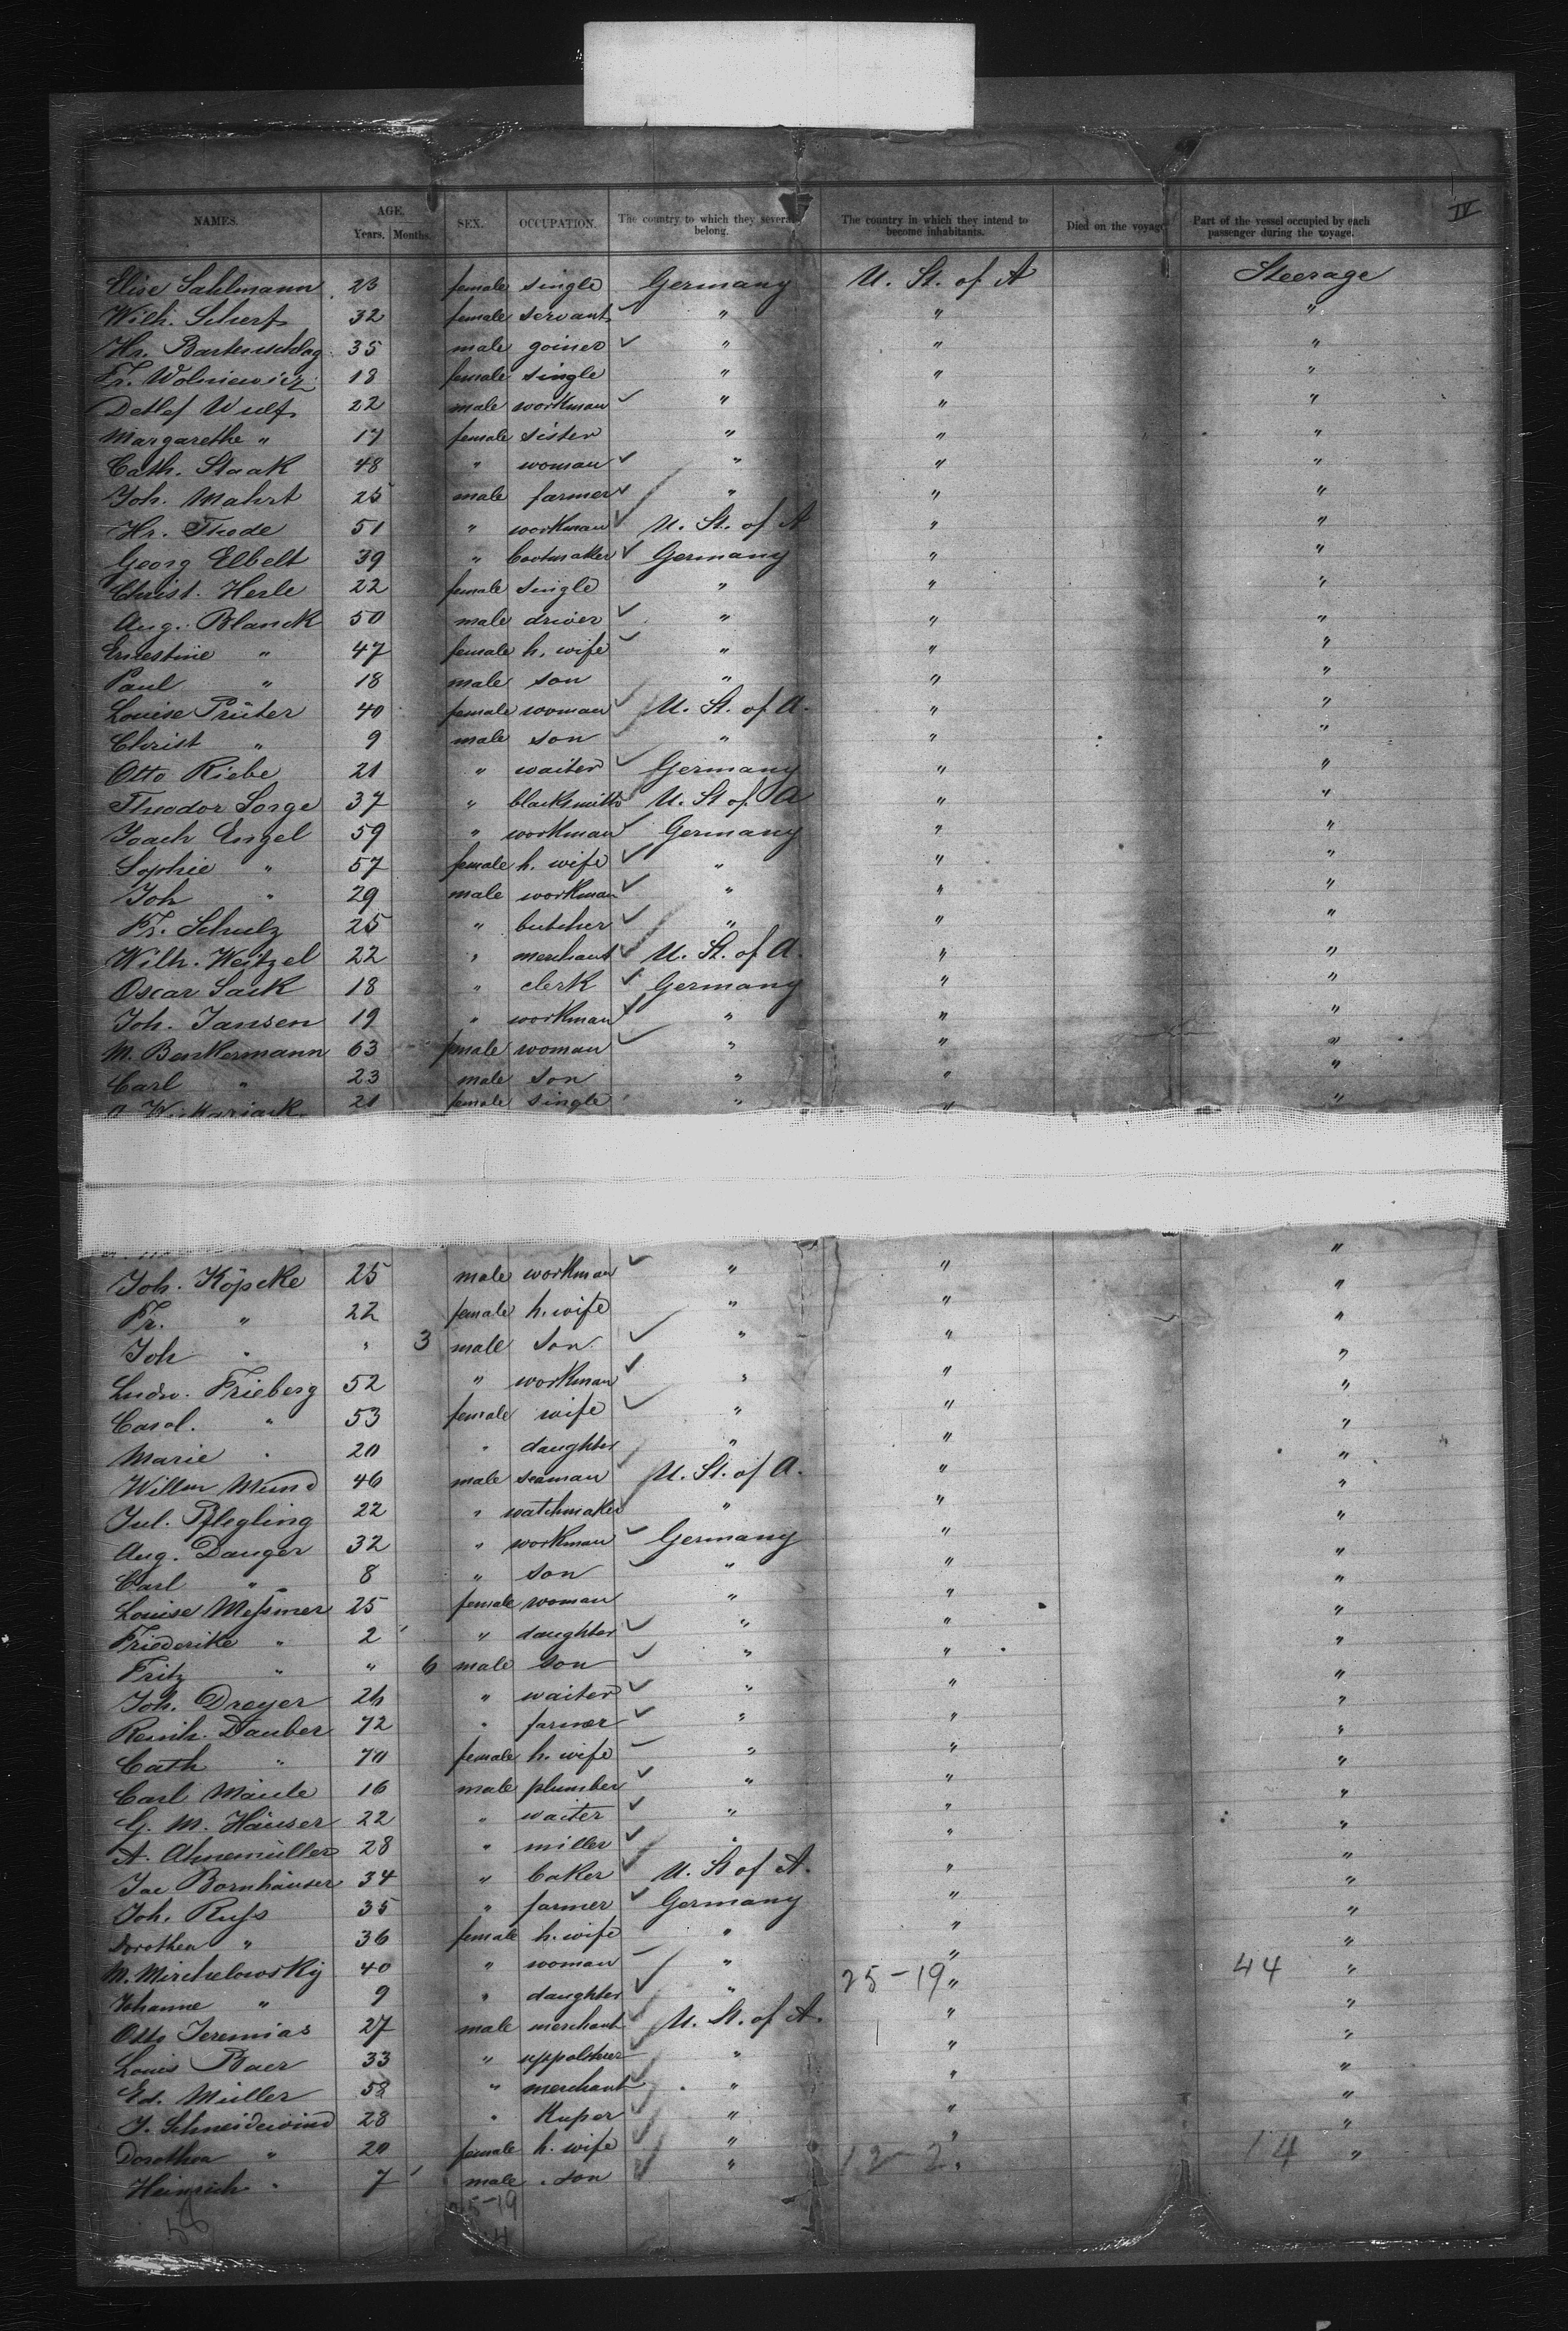 IV
NAMES. AGE. Years. Months. SEX. OCCUPATION. The country to which they severally belong. The country in which they intend to become inhabitants. Died on the voyage Part of the vessel occupied by each passenger during the voyage.
Elise Sahlmann 23 female single Germany U. St. of A Steerage
Wilh. Scherf 32 female servant " " "
Hr. Bartenschlag 35 male goiner " " "
Fr. Wolniewicz 18 female single " " "
Detlef Wulf 22 male workman " " "
Margarethe " 17 female sister " " "
Cath. Staak 48 " woman " " "
Joh. Mahrt 25 male farmer " " "
Hr. Thode 51 " workman U. St. of A " "
Georg Elbelt 39 " bootmaker Germany " "
Christ. Herle 22 female single " " "
Aug. Blanck 50 male driver " " "
Ernestine " 47 female h. wife " " "
Paul " 18 male son " " "
Louise Prüter 40 female woman U. St. of A. " "
Christ " 9 male son " " "
Otto Riebe 21 " waiter Germany " "
Theodor Sorge 37 " blacksmith U. St of A " "
Joach Engel 59 " workman Germany " "
Sophie " 57 female h. wife " " "
Joh " 29 male workman " " "
Fr. Schulz 25 " butcher " " "
Wilh. Weitzel 22 " merchant U. St. of A. " "
Oscar Sack 18 " clerk Germany " "
Joh. Jansen 19 " workman " " "
M. Benkermann 63 female woman " " "
Carl " 23 male son " " "
21 female single " " "
Joh. Köpcke 25 male workman " " "
Fr. " 22 female h. wife " " "
Joh " " 3 male son " " "
Ludw. Frieberg 52 " workman " " "
Carol. " 53 female wife " " "
Marie " 20 " daughter " " "
Willm Mund 46 male seaman U. St. of A. " "
Jul. Pflegling 22 " watchmaker " " "
Aug. Danger 32 " workman Germany " "
Carl " 8 " son " " "
Louise Meßmer 25 female woman " " "
Friederike " 2 " daughter " " "
Fritz " " 6 male son " " "
Joh. Dreyer 26 " waiter " " "
Reinh. Dauber 72 " farmer " " "
Cath " 70 female h. wife " " "
Carl Mäule 16 male plumber " " "
G. M. Häuser 22 " waiter " " "
A. Ahnemüller 28 " miller " " "
Jac Bornhäuser 34 " baker U. St of A. " "
Joh. Ruß 35 " farmer Germany " "
Dorothea " 36 female h. wife " " "
M. Mirchelowsky 40 " woman " " "
Johanne " 9 " daughter " 25-19 " 44 "
Otto Jeremias 27 male merchant U. St. of A. " "
Louis Baer 33 " uppolsterer " " "
Ed. Müller 58 " merchant " " "
J. Schneidewind 28 " Kuper " " "
Dorothea " 20 female h. wife " " "
Heinrich " 7 male son " 12-2 " 14 "
58 25-19
44